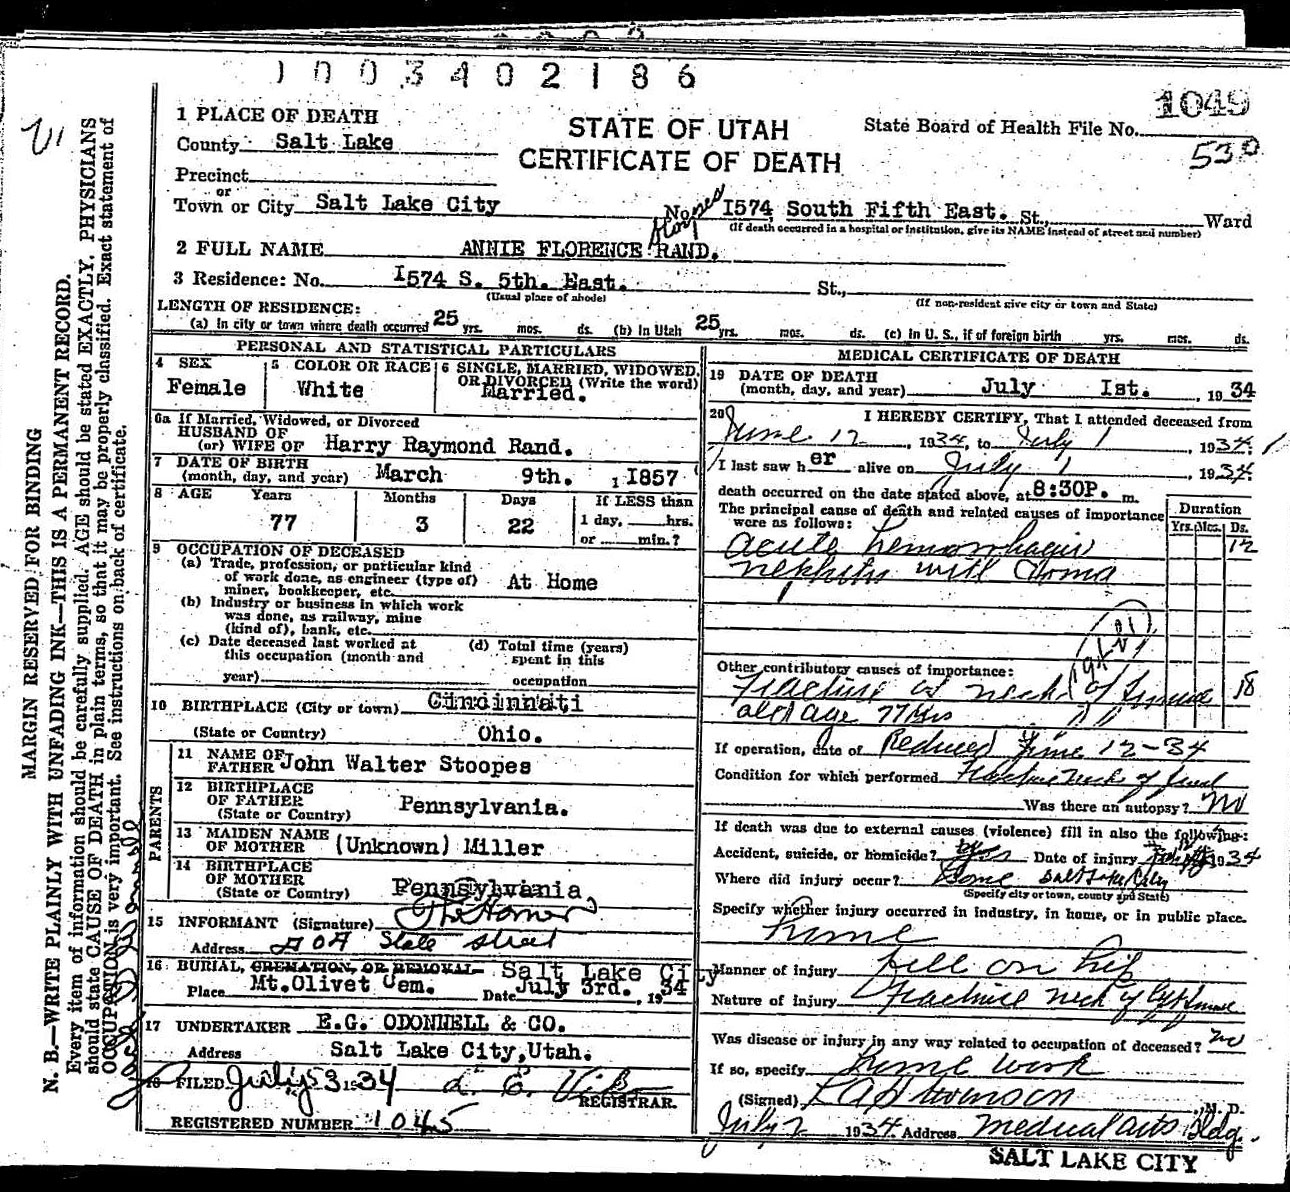 1003402186
1049
1 PLACE OF DEATH
STATE OF UTAH
State Board of Health File No.
530
County Salt Lake
CERTIFICATE OF DEATH
Precinct
or
Town or City Salt Lake City No. I574 South Fifth East. St., Ward
(If death occurred in a hospital or institution, give its NAME instead of street and number)
Stoopes
2 FULL NAME ANNIE FLORENCE RAND.
3 Residence: No. I574 S. 5th. East. St.,
(Usual place of abode) (If non-resident give city or town and State)
LENGTH OF RESIDENCE:
(a) In city or town where death occurred 25 yrs. mos. ds. (b) In Utah 25 yrs. mos. ds. (c) In U. S., if of foreign birth yrs. mos. ds.
PERSONAL AND STATISTICAL PARTICULARS
4 SEX
Female
5 COLOR OR RACE
White
6 SINGLE, MARRIED, WIDOWED,
OR DIVORCED (Write the word)
Married.
6a If Married, Widowed, or Divorced
HUSBAND OF
(or) WIFE OF Harry Raymond Rand.
7 DATE OF BIRTH
(month, day, and year) March 9th. , 1857
8 AGE Years Months Days If LESS than
77 3 22 1 day, hrs.
or min.?
9 OCCUPATION OF DECEASED
(a) Trade, profession, or particular kind
of work done, as engineer (type of)
miner, bookkeeper, etc. At Home
(b) Industry or business in which work
was done, as railway, mine
(kind of), bank, etc.
(c) Date deceased last worked at
this occupation (month and
year)
(d) Total time (years)
spent in this
occupation
10 BIRTHPLACE (City or town) Cincinnati
(State or Country) Ohio.
PARENTS
11 NAME OF
FATHER John Walter Stoopes
12 BIRTHPLACE
OF FATHER
(State or Country) Pennsylvania.
13 MAIDEN NAME
OF MOTHER (Unknown) Miller
14 BIRTHPLACE
OF MOTHER
(State or Country) Pennsylvania,
15 INFORMANT (Signature)
Address State Street
16 BURIAL, CREMATION, OR REMOVAL Salt Lake City
Place Mt.Olivet Cem. Date July 3rd. , 1934
17 UNDERTAKER E.G. ODONNELL & CO.
Address Salt Lake City,Utah.
18 FILED July 3 1934
REGISTRAR.
REGISTERED NUMBER 1045
MEDICAL CERTIFICATE OF DEATH
19 DATE OF DEATH
(month, day, and year) July Ist. , 1934
20 I HEREBY CERTIFY, That I attended deceased from
June 12, 1934, to July 1, 1934.
I last saw her alive on July 1, 1934.
death occurred on the date stated above, at 8:30P. m.
The principal cause of death and related causes of importance
were as follows:
Duration
Yrs. Mos. Ds.
acute hemorrhagic 12
nephritis with Coma
Other contributory causes of importance:
Fracture of neck of femur 18
old age 77 yrs
If operation, date of Reduced June 12-34
Condition for which performed Fracture neck of femur
Was there an autopsy? no
If death was due to external causes (violence) fill in also the following:
Accident, suicide, or homicide? yes Date of injury 1934
Where did injury occur? Home Salt Lake City
(Specify city or town, county and State)
Specify whether injury occurred in industry, in home, or in public place.
home
Manner of injury fell on hip
Nature of injury Fracture neck of left femur
Was disease or injury in any way related to occupation of deceased? no
If so, specify home work
(Signed) , M. D.
July 2 1934. Address Medical Arts Bldg.
SALT LAKE CITY
MARGIN RESERVED FOR BINDING
N. B.—WRITE PLAINLY WITH UNFADING INK—THIS IS A PERMANENT RECORD.
Every item of information should be carefully supplied. AGE should be stated EXACTLY. PHYSICIANS
should state CAUSE OF DEATH in plain terms, so that it may be properly classified. Exact statement of
OCCUPATION is very important. See instructions on back of certificate.